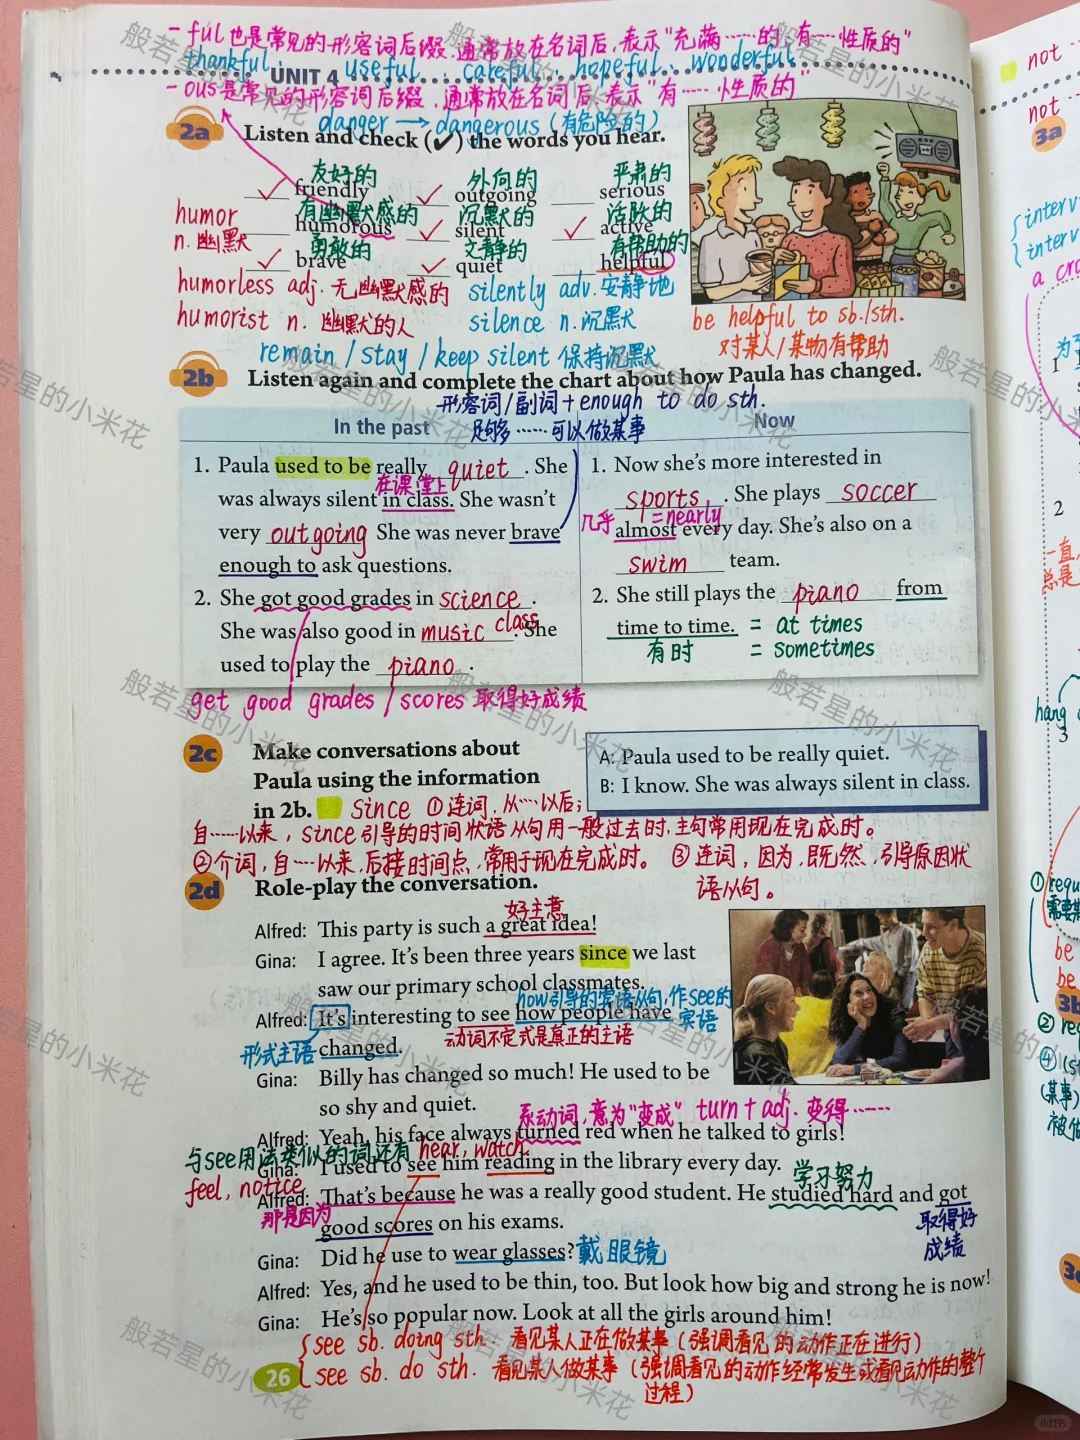 -ful也是常见的形容词后缀.通常放在名词后,表示"充满……的,有……性质的"
thankful、useful、careful、hopeful、wonderful
UNIT 4
-ous是常见的形容词后缀,通常放在名词后,表示"有……性质的"
danger → dangerous(有危险的)
2a Listen and check (✔) the words you hear.
友好的 外向的 严肃的
✓ friendly ✓ outgoing ___ serious
有幽默感的 沉默的 活跃的
humor
___ humorous ✓ silent ✓ active
n.幽默
勇敢的 文静的 有帮助的
✓ brave ✓ quiet ___ helpful
humorless adj.无幽默感的 silently adv.安静地
humorist n.幽默的人 silence n.沉默
be helpful to sb./sth.
对某人/某物有帮助
remain/stay/keep silent 保持沉默
2b Listen again and complete the chart about how Paula has changed.
形容词/副词+enough to do sth.
足够……可以做某事
In the past
1. Paula used to be really quiet. She
在课堂上
was always silent in class. She wasn't
very outgoing She was never brave
enough to ask questions.
2. She got good grades in science.
She was also good in music class. She
used to play the piano.
get good grades/scores 取得好成绩
Now
1. Now she's more interested in
sports. She plays soccer
几乎 =nearly
almost every day. She's also on a
swim team.
2. She still plays the piano from
time to time. = at times
有时 = sometimes
2c Make conversations about
Paula using the information
in 2b.
A: Paula used to be really quiet.
B: I know. She was always silent in class.
Since ①连词.从…以后;
自……以来,since引导的时间状语从句用一般过去时,主句常用现在完成时。
②介词,自…以来,后接时间点,常用于现在完成时。 ③连词,因为,既然,引导原因状
语从句。
2d Role-play the conversation.
好主意
Alfred: This party is such a great idea!
Gina: I agree. It's been three years since we last
saw our primary school classmates.
how引导的宾语从句,作see的
宾语
Alfred: It's interesting to see how people have
形式主语 changed. 动词不定式是真正的主语
Gina: Billy has changed so much! He used to be
so shy and quiet.
系动词,意为"变成" turn+adj.变得……
Alfred: Yeah, his face always turned red when he talked to girls!
与see用法类似的词还有hear,watch
feel,notice
Gina: I used to see him reading in the library every day.
学习努力
Alfred: That's because he was a really good student. He studied hard and got
那是因为
good scores on his exams.
取得好
成绩
Gina: Did he use to wear glasses? 戴眼镜
Alfred: Yes, and he used to be thin, too. But look how big and strong he is now!
Gina: He's so popular now. Look at all the girls around him!
see sb. doing sth. 看见某人正在做某事(强调看见的动作正在进行)
see sb. do sth. 看见某人做某事(强调看见的动作经常发生或看见动作的整个
过程)
26
not
not
3a
interv
interv
a cr
1
2
一直,
总是
hang
3
① requ
需要
be
be
3b
② re
④ (s
(某事)
被
3c
般若星的小米花
小红书